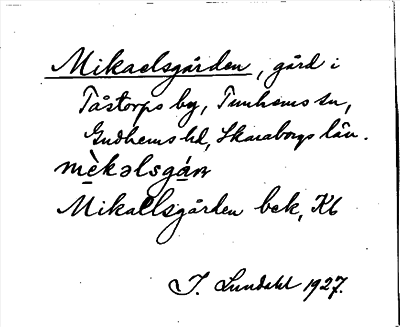 Mikaelsgården, gård i
Tåstorps by, Tunhems sn,
Gudhems hd, Skaraborgs län.
mèkəlsgán
Mikaelsgården bek, Kb
I. Lundahl 1927.